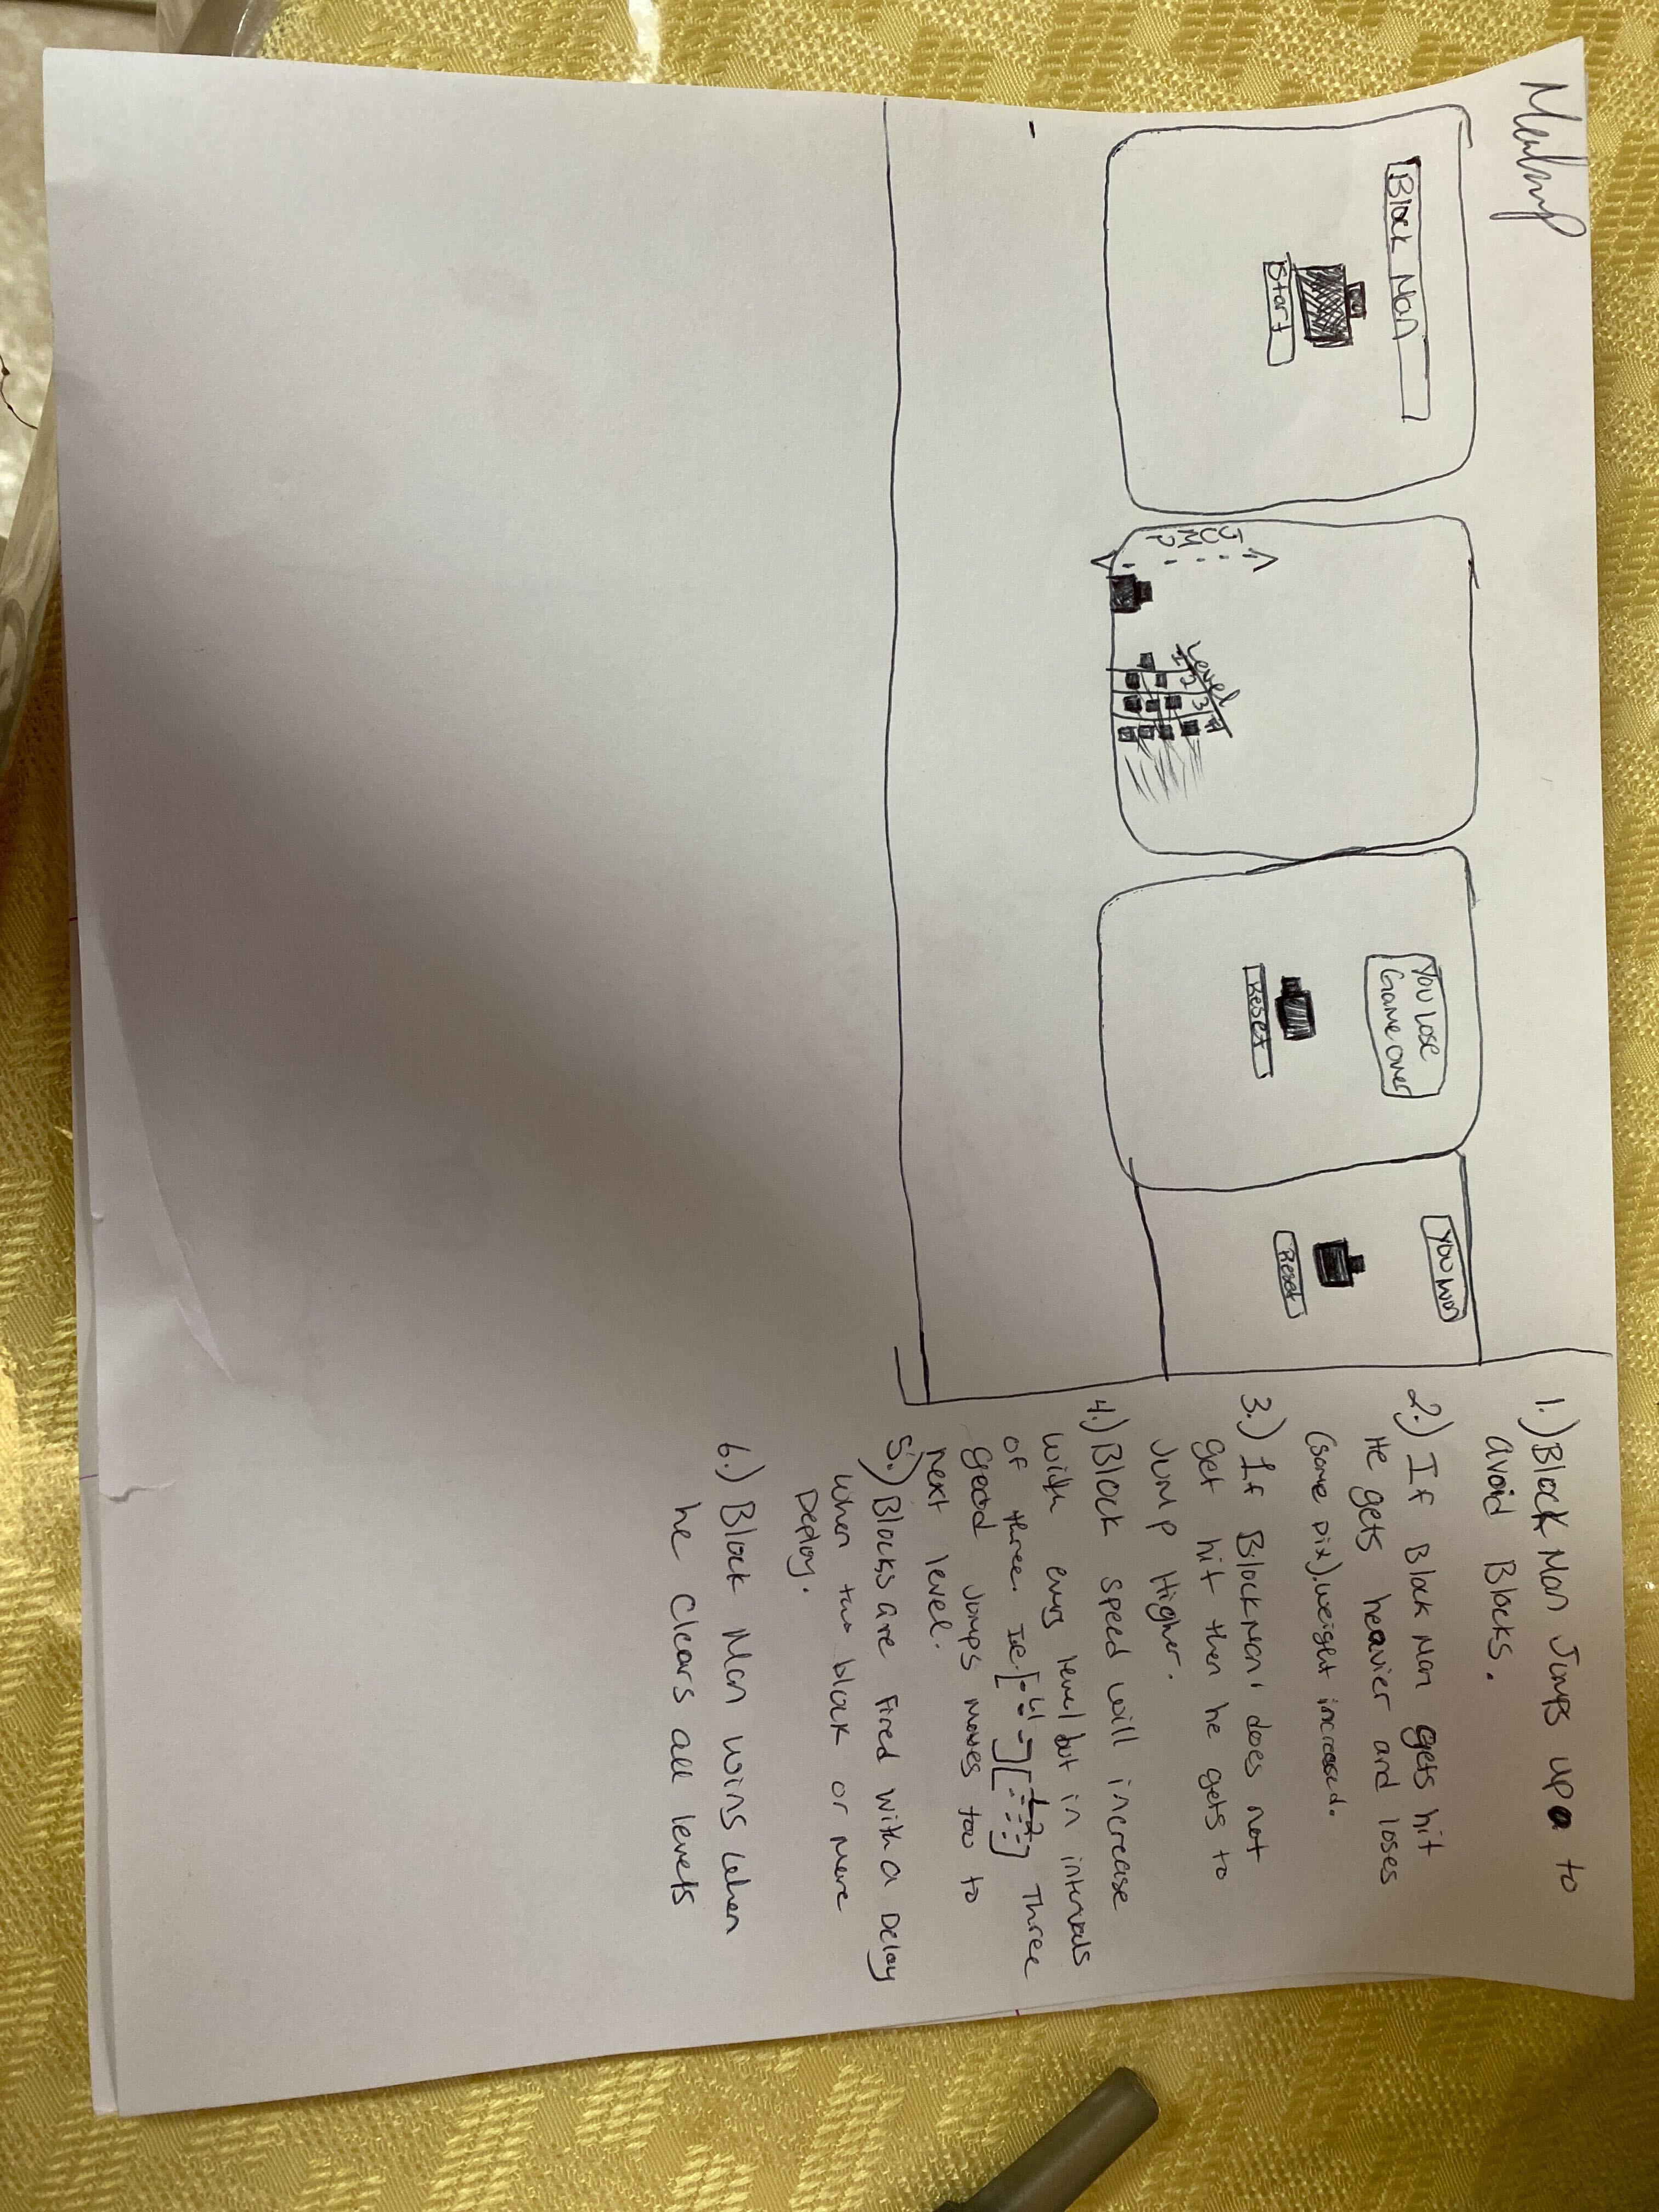 Block Man
Start
JUMP
Level
1 2 3 4
You Lose
Game over
Reset
You won
Reset
1.) Block Man Jumps up to
avoid Blocks.
2.) If Block Man gets hit
He gets heavier and loses
(some pix). weight increased.
3.) If Block Man does not
get hit then he gets to
Jump Higher.
4.) Block speed will increase
with every level but in intervals
of three. Ie. Three
good Jumps moves too to
next level.
5.) Blocks are Fired with a Delay
when two block or more
Deploy.
6.) Block Man wins when
he clears all levels